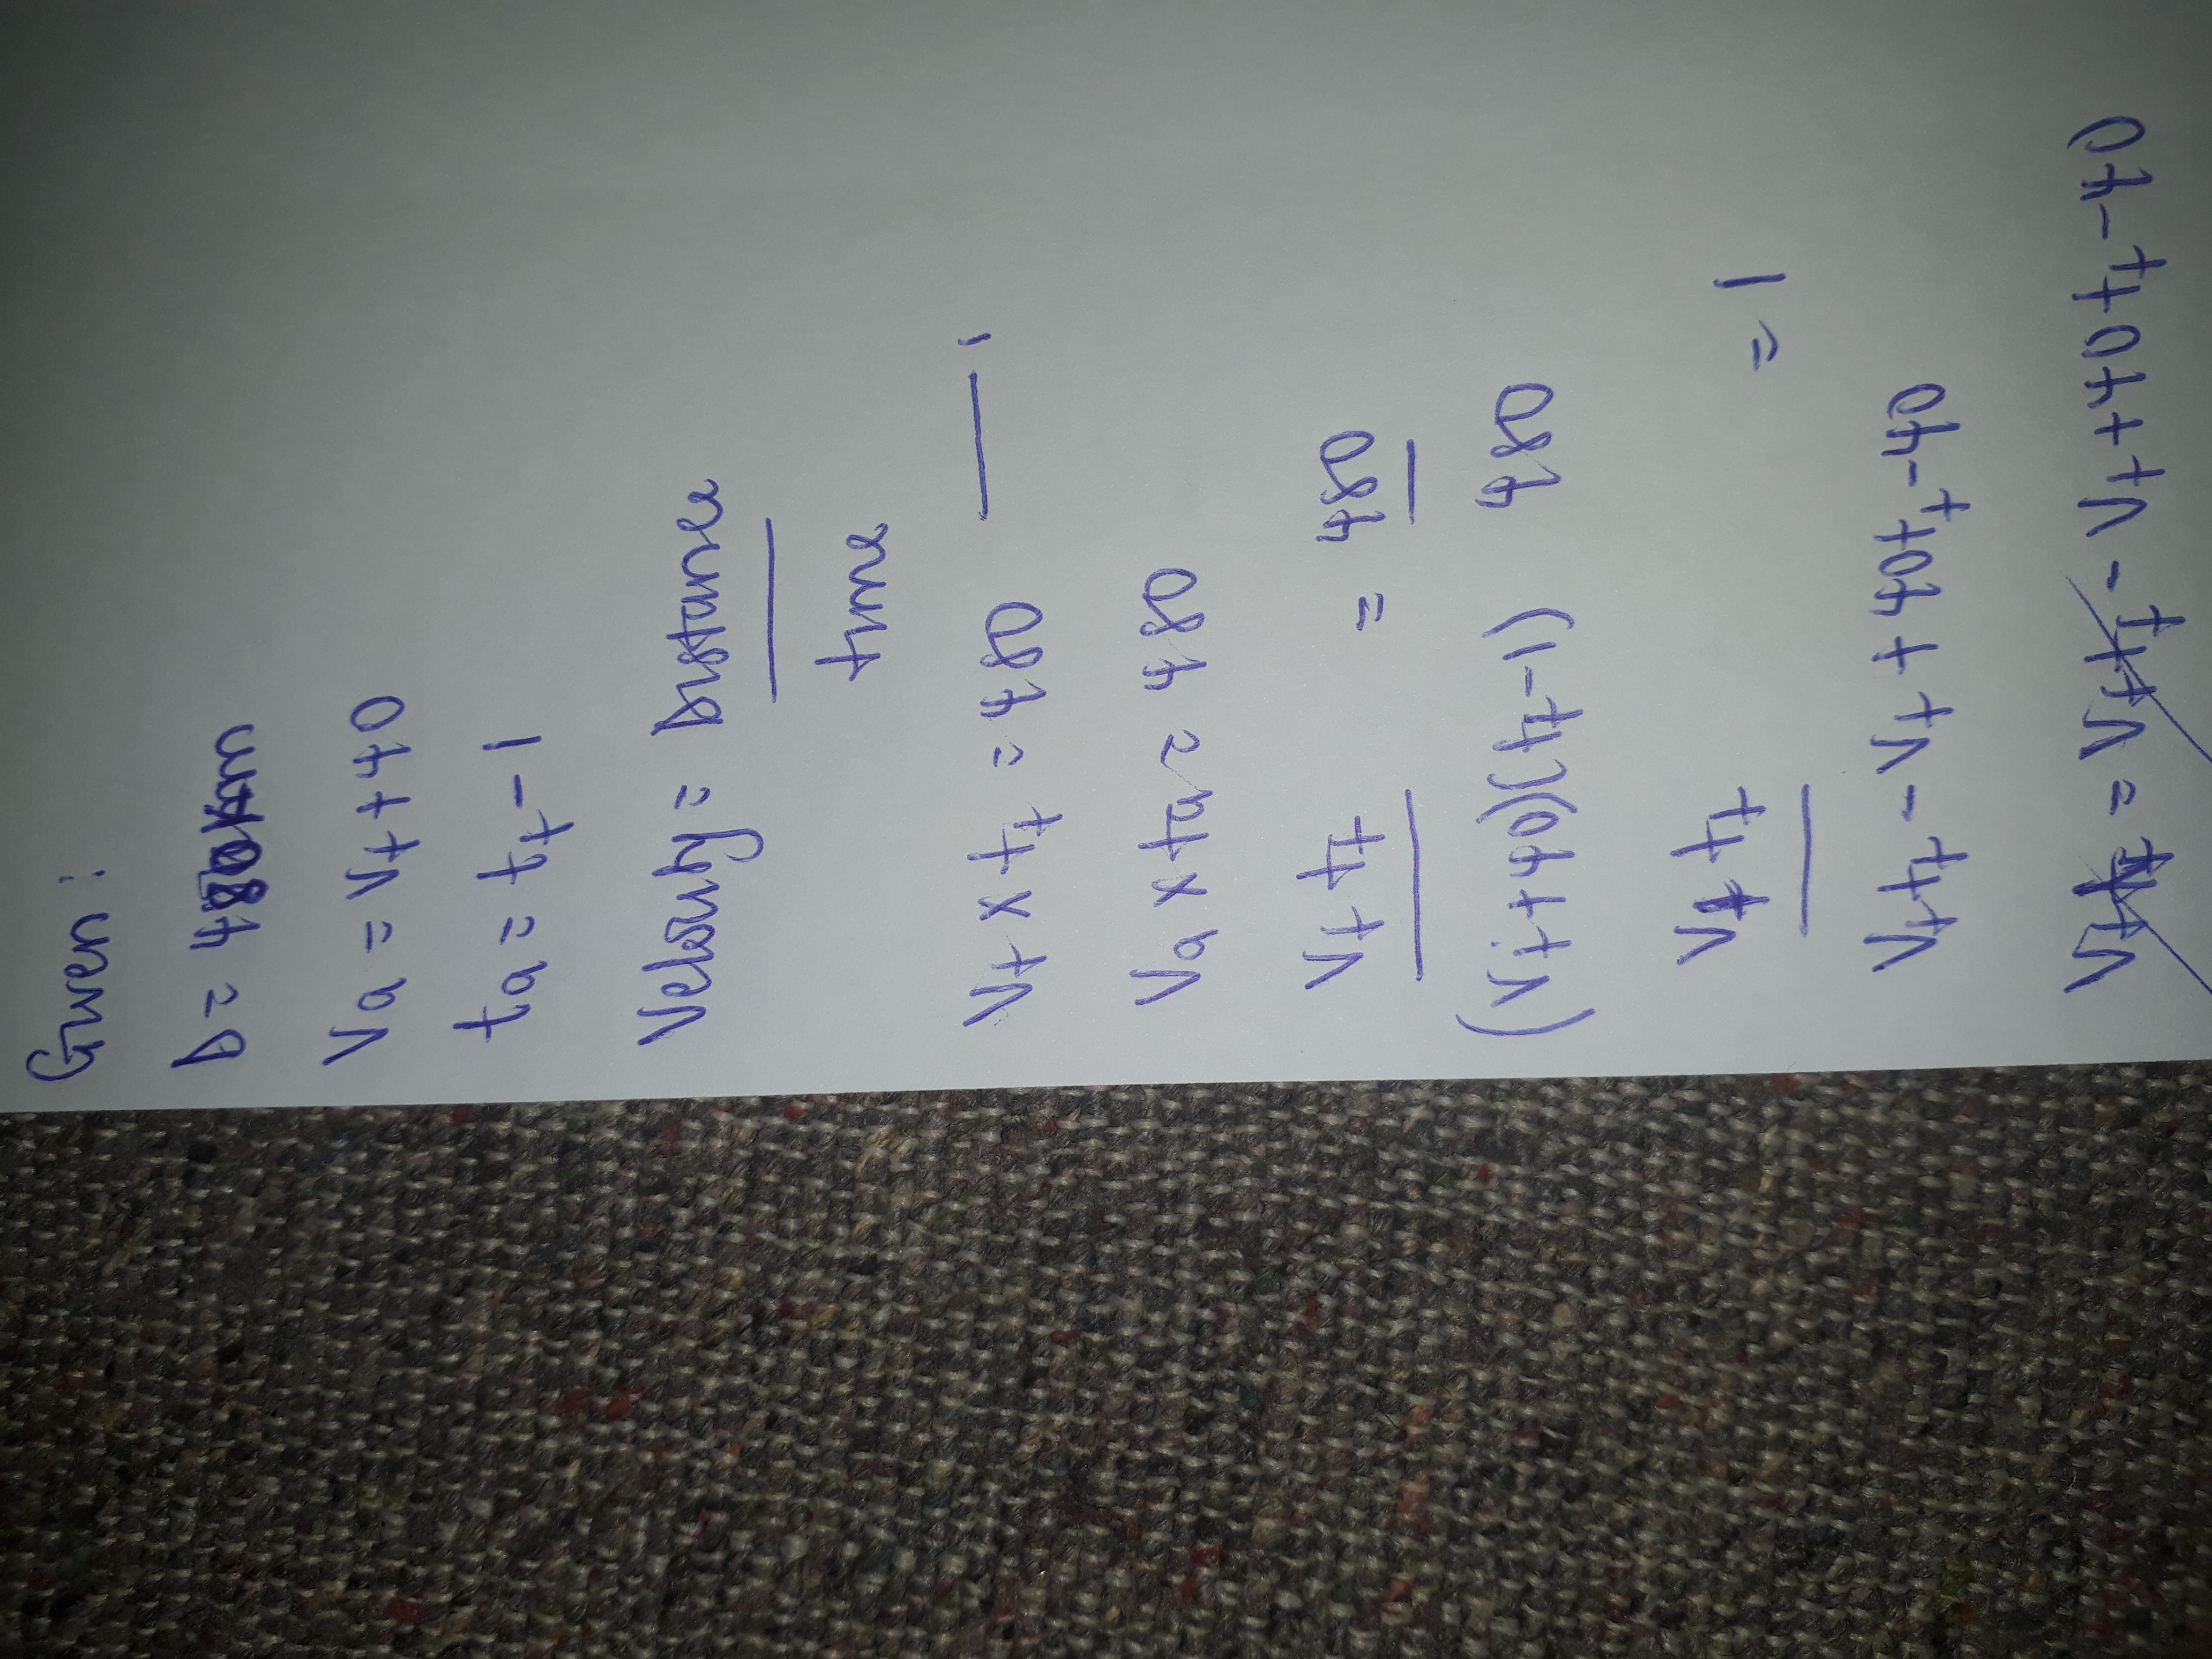 Given :
D = 480 km
Va = Vt + 40
ta = tt - 1
Velocity = Distance
time
Vt x tt = 480 — 1
Va x ta = 480
Vt tt = 480
(Vt + 40)(tt - 1) 480
Vt tt = 1
Vt tt - Vt + 40tt - 40
Vt tt = Vt tt - Vt + 40 tt - 40